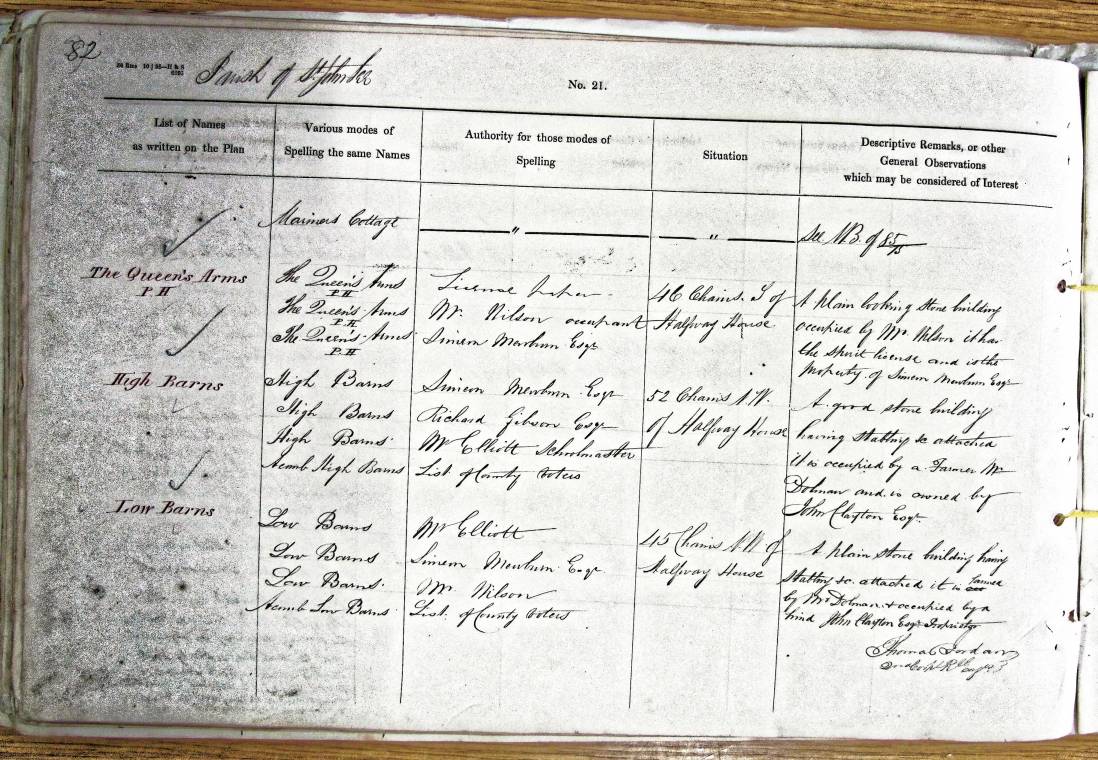 82
Parish of St John Lee
No. 21.
List of Names
as written on the Plan
Various modes of
Spelling the same Names
Authority for those modes of
Spelling
Situation
Descriptive Remarks, or other
General Observations
which may be considered of Interest
Mariners Cottage
"
"
See N.B. of 85
The Queen's Arms
P H
The Queen's Arms
P H
The Queen's Arms
P H
The Queen's Arms
P H
License
Mr. Wilson occupant
Simeon Mewburn Esqr
46 Chains. S of
Halfway House
A plain looking stone building
occupied by Mr. Wilson it has
the spirit license and is the
Property of Simeon Mewburn Esqr
High Barns
High Barns
High Barns
High Barns
Acomb High Barns
Simeon Mewburn Esqr
Richard Gibson Esqr
Mr Elliott Schoolmaster
List of County Voters
52 Chains N.W.
of Halfway House
A good stone building
having stabling &c attached
it is occupied by a Farmer Mr
Dolman and is owned by
John Clayton Esqr.
Low Barns
Low Barns
Low Barns
Low Barns
Acomb Low Barns
Mr Elliott
Simeon Mewburn Esqr
Mr. Wilson
List of County Voters
45 Chains N.W. of
Halfway House
A plain stone building having
stabling &c. attached it is farmed
by Mr Dolman & occupied by a
hind John Clayton Esqr Proprietor
Thomas Jordan
2nd Corpl Rl Engrs